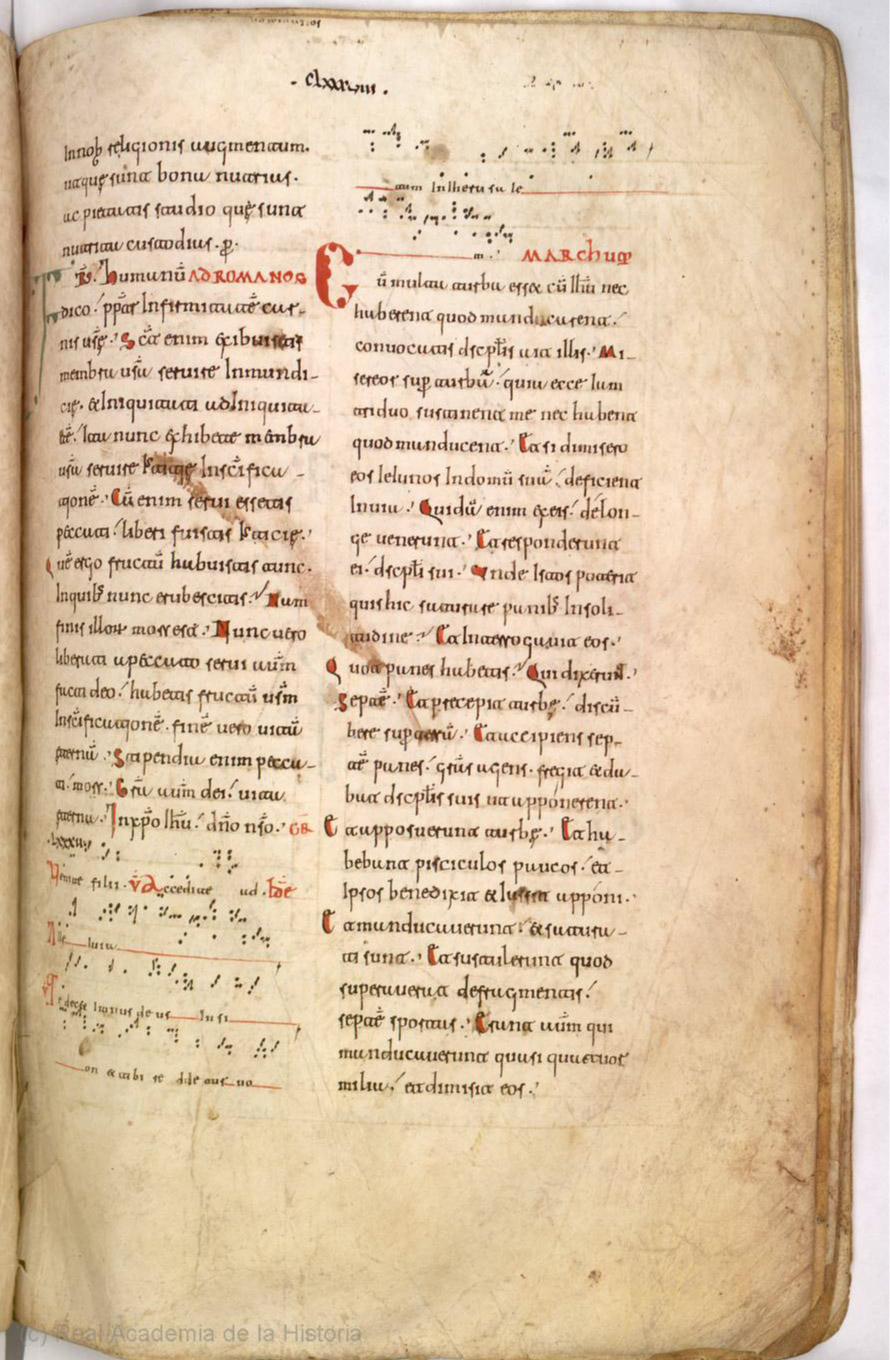 · clxxxviiii ·
In nob religionis augmentum.
ut que sunt bona nutrias.
ac pietatis studio quę sunt
nutrita custodias. ꝑ.
humanū AD ROMANOS
dico. ppt̄ Infirmitatē car-
nis usē. Sc̄a enim exibuistis
membra usā seruire Inmundi-
cię. et Iniquitati ad Iniquita-
tē. Ita nunc exhibete mēnbra
usā seruire Iusticię In sc̄ifica-
tionē. Cū enim serui essetis
peccati. liberi fuistis Iusticię.
Quē ergo fructū habuistis tunc.
In quib nunc erubescitis. Nam
finis illoꝝ mors est. Nunc uero
liberati a peccato serui aūm
facti deo. habetis fructū usm̄
In sc̄ificationē. finē uero uitā
eternū. Stipendia enim pecca-
ti. mors. Gr̄a aūm dei. uita
eterna. In xp̄o Ihū. dn̄o nso. GR
lxxxvi
Uenite filii. V Accedite ad. 
Alleluia
Te decet Imnus deus In si
on et tibi redde tur uo
tum In Iherusale
m. MARCHUM
Cū multa turba esset cū Ihū nec
haberent quod manducarent.
conuocatis dscplis ait illis. Mi-
sereor sup turbā. quia ecce Iam
triduo sustinent me nec habent
quod manducent. Et si dimisero
eos Ieiunos In domū suā. deficient
In uia. Quidā enim ex eis. de lon-
ge uenerunt. Et responderunt
ei. dscpli sui. Unde Istos poterit
quis hic saturare panib In soli-
tudine. Et Interrogauit eos.
Quot panes habetis. Qui dixerunt.
Septē. Et precepit turbę. discū-
bere sup terrā. Et accipiens sep-
tē panes. grās agens. fregit et da-
bat dscplis suis ut apponerent.
Et apposuerunt turbę. Et ha-
bebant pisciculos paucos. et
Ipsos benedixit et Iussit apponi.
Et manducauerunt. et satura-
ti sunt. Et sustulerunt quod
superauerat de fragmentis.
septē sportas. Erant aūm qui
manducauerunt quasi quatuor
milia. et dimisit eos.
(c) Real Academia de la Historia